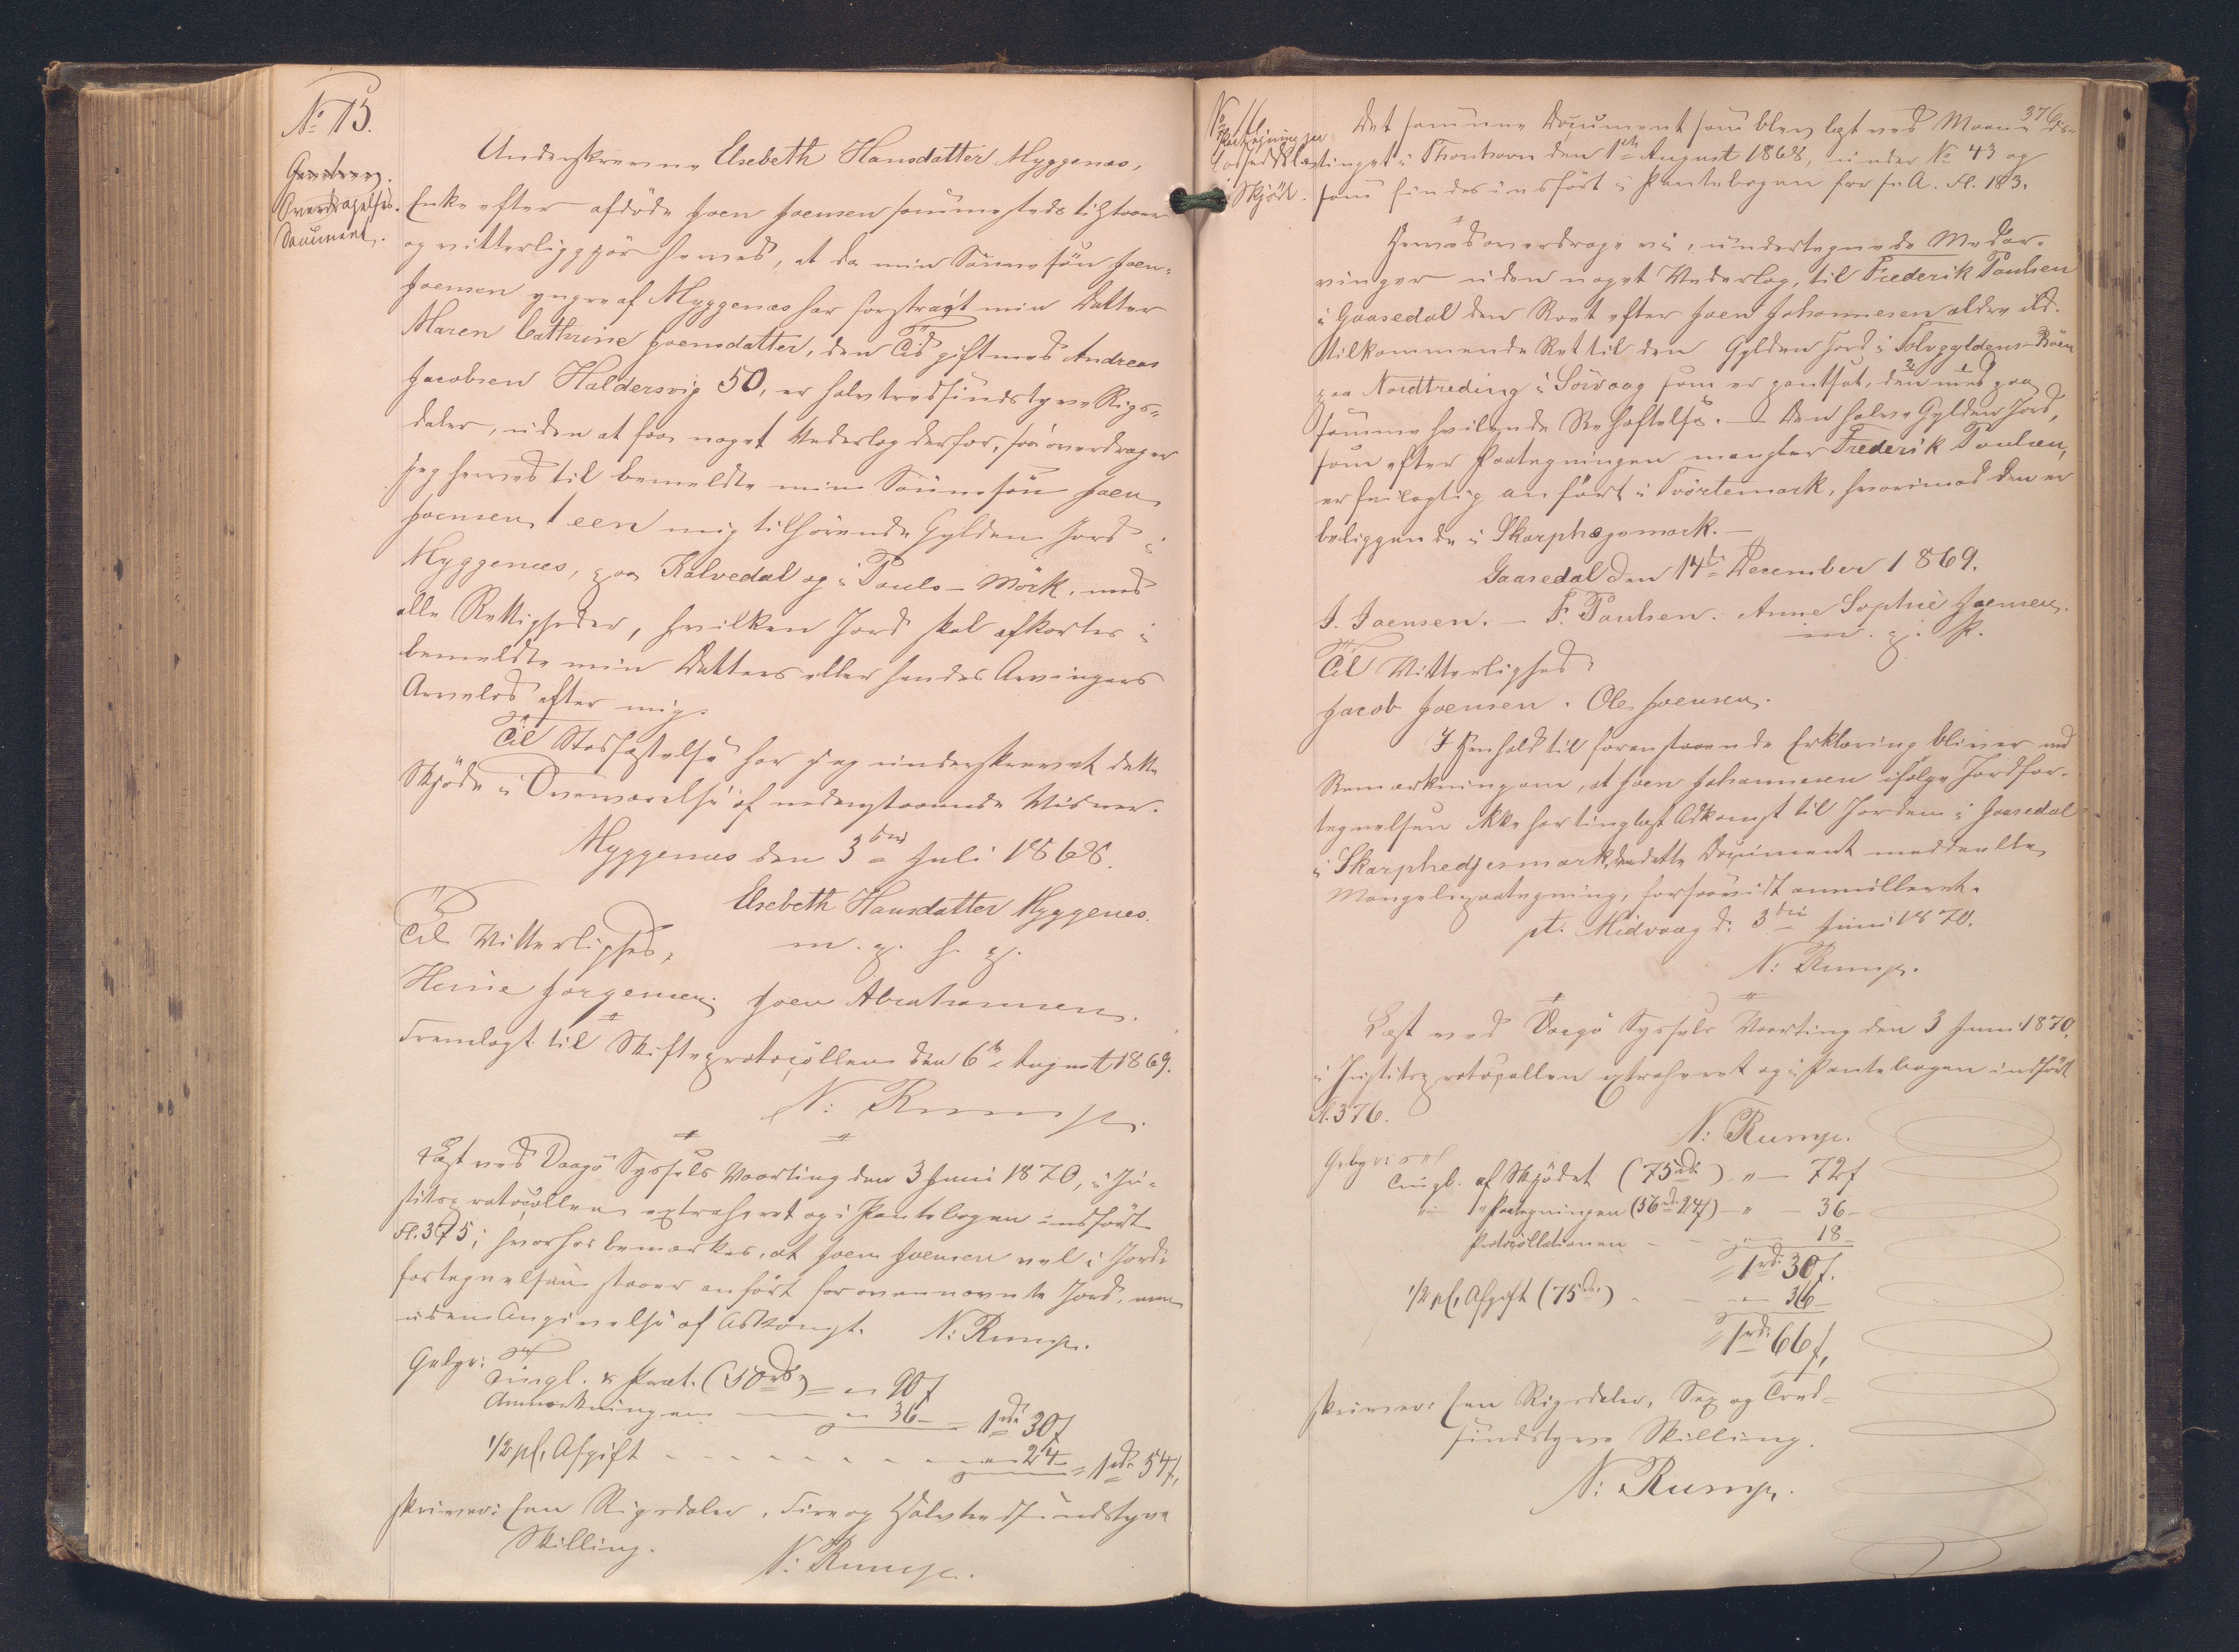 No 15.
Gen̶b̶r̶e̶v̶.
Overdragelses-
Document.
Underskrevne Elsebeth Hansdatter Myggenæs,
Enke efter afdøde Joen Joensen sammesteds tilstaaer
og vitterliggjør herved, at da min Sønnesøn Joen
Joensen yngre af Myggenæs har forstragt min Datter
Maren Cathrine Joensdatter, den Tid gift med Andreas
Jacobsen Haldersvig 50, er halvtredsindstyve Rigs-
daler, uden at faae noget Vederlag derfor, saa overdrager
jeg herved til bemeldte min Sønnesøn Joen
Joensen 1 een mig tilhørende Gylden Jord i
Myggenæs, paa Kalvedal og i Pauls-Mörk, med
alle Rettigheder, hvilken Jord skal afkortes i
bemeldte min Datters eller hendes Arvingers
Arvelod efter mig.
Til Stadfæstelse har jeg underskrevet dette
Skjøde i Overværelse af nedenstaaende Vidner.
Myggenæs den 3die Juli 1868.
Elsebeth Hansdatter Myggenes.
m. p. h. p.
Til Vitterlighed,
Heine Jørgensen, Joen Abrahamsen.
Fremlagt til Skifteprotocollen den 6te August 1869.
N: Rump.
Læst ved Vaagø Syssels Vaarting den 3 Juni 1870, i Ju-
stitsprotocollen extraheret og i Pantebogen indført
Fl. 375; hvorhos bemærkes, at Joen Joensen vel i Jord-
fortegnelsen staaer anført for ovennævnte Jord, men
uden Angivelse af Adkomst. N: Rump.
Gebyr:
Tingl. & Prot. (50 rd) = " 90 s
Anmærkningen — " 36 - = 1 rd 30 s
1/2 pCt Afgift - - - - " 24 - = 1 rd 54 s,
skriver: Een Rigsdaler, Fire og Halvtredsindstyve
Skilling.
N: Rump.
376.
No 16
Paategning paa
i Skjøde.
Det samme Document som blev læst ved Manu-
tinget i Thorshavn den 1ste August 1868, under No 43 og
som findes indført i Pantebogen for S. A. Fl. 183.
Herved overdrage vi, undertegnede Medar-
vinger uden noget Vederlag, til Frederik Paulsen
i Gaasedal den Part efter Joen Johannesen ældre ibd.
tilkommende Ret til den Gylden Jord i Tolvgyldens-Böen
paa Nordtreding i Sörvaag som er pantsat, den med paa
samme hvilende Behæftelse. — Den halve Gylden Jord,
som efter Paategningen mangler Frederik Paulsen,
er feilagtig anført i Tvörtemork, hvorimod den er
beliggende i Skarphøgsmork. —
Gaasedal den 14de December 1869.
J. Joensen. — F. Paulsen. Anne Sophie Joensen.
m. p. P.
Til Vitterlighed:
Jacob Joensen. Ole Joensen.
I Henhold til foranstaaende Erklæring bliver med
Bemærkning om, at Joen Johannesen ifølge Jordfor-
tegnelsen ikke har tinglæst Adkomst til Jorden i Gaasedal
i Skarphedjesmork, den dette Document meddeelte
Mangelspaategning, forsaavidt annulleret.
pt. Midvaag d. 3die Juni 1870.
N: Rump.
Læst ved Vaagø Syssels Vaarting den 3 Juni 1870,
i Justitsprotocollen extraheret og i Pantebogen indført
Fl. 376.
N: Rump.
Gebyr:
Tingl. af Skjødet (75 rd.) " — 72 s
" " Paategningen (56 rd. 24 s) — " — 36 -
Protocollationen — - 18 -
1 rd. 30 s.
1/2 pCt. Afgift (75 rd.) - 36 -
1 rd. 66 s,
skriver: Een Rigsdaler, Sex og Tred-
sindstyve Skilling.
N: Rump.